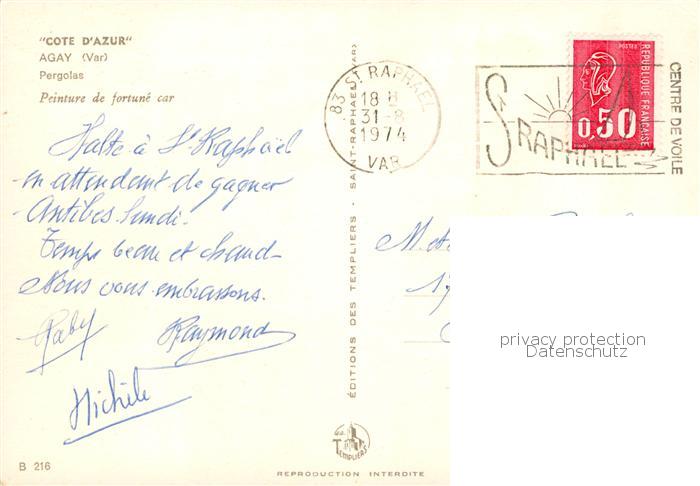 "COTE D'AZUR"
AGAY (Var)
Pergolas
Peinture de fortuné car
Halte à St Raphaël
en attendant de gagner
Antibes lundi.
Temps beau et chaud
Nous vous embrassons.
Gaby Raymond
Michèle
B 216
ÉDITIONS DES TEMPLIERS - SAINT-RAPHAEL (VAR)
Les TEMPLIERS
REPRODUCTION INTERDITE
83 ST RAPHAEL
18 H
31-8
1974
VAR
ST RAPHAEL
CENTRE DE VOILE
POSTES
REPUBLIQUE FRANÇAISE
0,50
M. et
17
privacy protection
Datenschutz